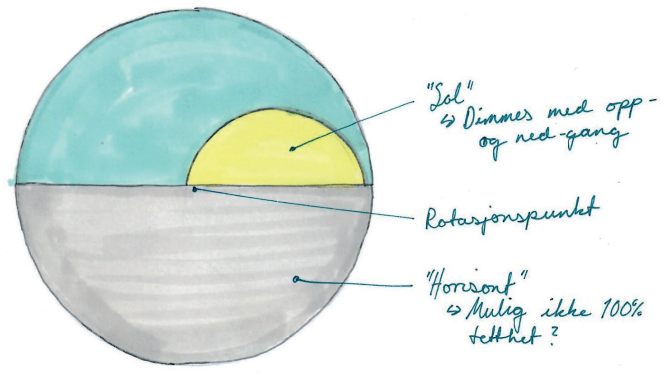 "Sol"
↳ Dimmes med opp-
og ned-gang
Rotasjonspunkt
"Horisont"
↳ Mulig ikke 100%
tetthet?